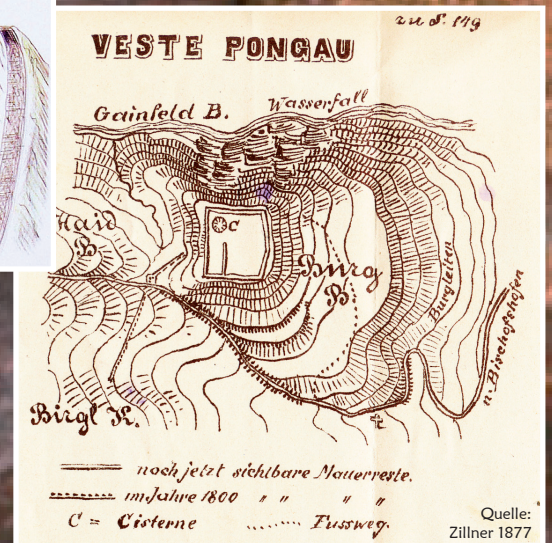 zu S. 149
VESTE PONGAU
Gainfeld B.
Wasserfall
Haid
B
C
Burg
B
Burgleiten
n. Bischofshofen
Birgl K.
noch jetzt sichtbare Mauerreste.
im Jahre 1800 " " " "
C = Cisterne
Fussweg.
Quelle:
Zillner 1877